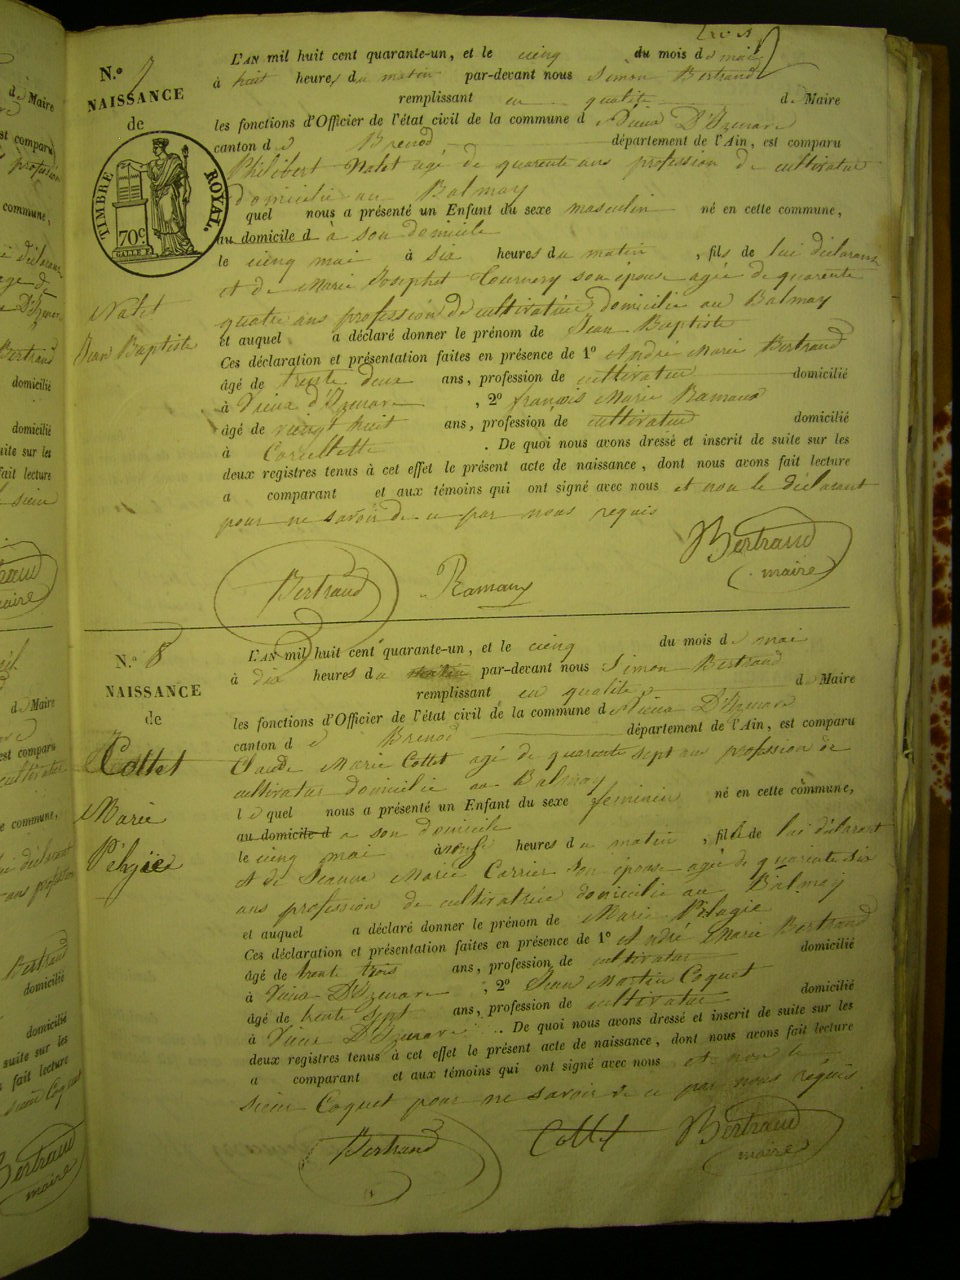 trois
N.o 7
NAISSANCE
de
TIMBRE ROYAL.
70c.
Nalet
Jean Baptiste
L'AN mil huit cent quarante-un, et le cinq du mois de mai
à huit heures du matin par-devant nous Simon Bertrand
remplissant en qualité de Maire
les fonctions d'Officier de l'état civil de la commune d Vieux D'Izenave
canton d e Brenod département de l'Ain, est comparu
Philibert Nalet agé de quarente ans profession de cultivateur
domicilié au Balmay
quel nous a présenté un Enfant du sexe masculin né en cette commune,
au domicile d à son domicile
le cinq mai à six heures du matin , fils de lui déclarant
et de Marie Josephet son épouse agée de quarente
quatre ans profession de cultivatrice domicilié au Balmay
et auquel a déclaré donner le prénom de Jean Baptiste
Ces déclaration et présentation faites en présence de 1o André Marie Bertrand
âgé de trente deux ans, profession de cultivateur domicilié
à Vieux d'Izenave , 2o françois Marie Ramaux
âgé de vingt huit ans, profession de cultivateur domicilié
à . De quoi nous avons dressé et inscrit de suite sur les
deux registres tenus à cet effet le présent acte de naissance, dont nous avons fait lecture
a comparant et aux témoins qui ont signé avec nous et non le déclarant
pour ne savoir de ce par nous requis
Bertrand Ramaux Bertrand
maire
N.o 8
NAISSANCE
de
Collet
Marie
L'AN mil huit cent quarante-un, et le cinq du mois de mai
à dix heures du matin par-devant nous Simon Bertrand
remplissant en qualité de Maire
les fonctions d'Officier de l'état civil de la commune d Vieux D'Izenave
canton d e Brenod département de l'Ain, est comparu
Claude Marie Collet agé de quarente sept ans profession de
cultivateur domicilié au Balmay
le quel nous a présenté un Enfant du sexe feminin né en cette commune,
au domicile d a son domicile
le cinq mai à heures du matin , fille de lui déclarant
et de Jeanne Marie Carrier son épouse agée de quarente six
ans profession de cultivatrice domicilié au Balmay
et auquel a déclaré donner le prénom de Marie Pélagie
Ces déclaration et présentation faites en présence de 1o André Marie Bertrand
âgé de trente trois ans, profession de cultivateur domicilié
à Vieux D'Izenave , 2o Jean Martin Coquet
âgé de trente sept ans, profession de cultivateur domicilié
à Vieux D'Izenave . De quoi nous avons dressé et inscrit de suite sur les
deux registres tenus à cet effet le présent acte de naissance, dont nous avons fait lecture
a comparant et aux témoins qui ont signé avec nous et non le
sieur Coquet pour ne savoir de ce par nous requis
Bertrand Collet Bertrand
maire